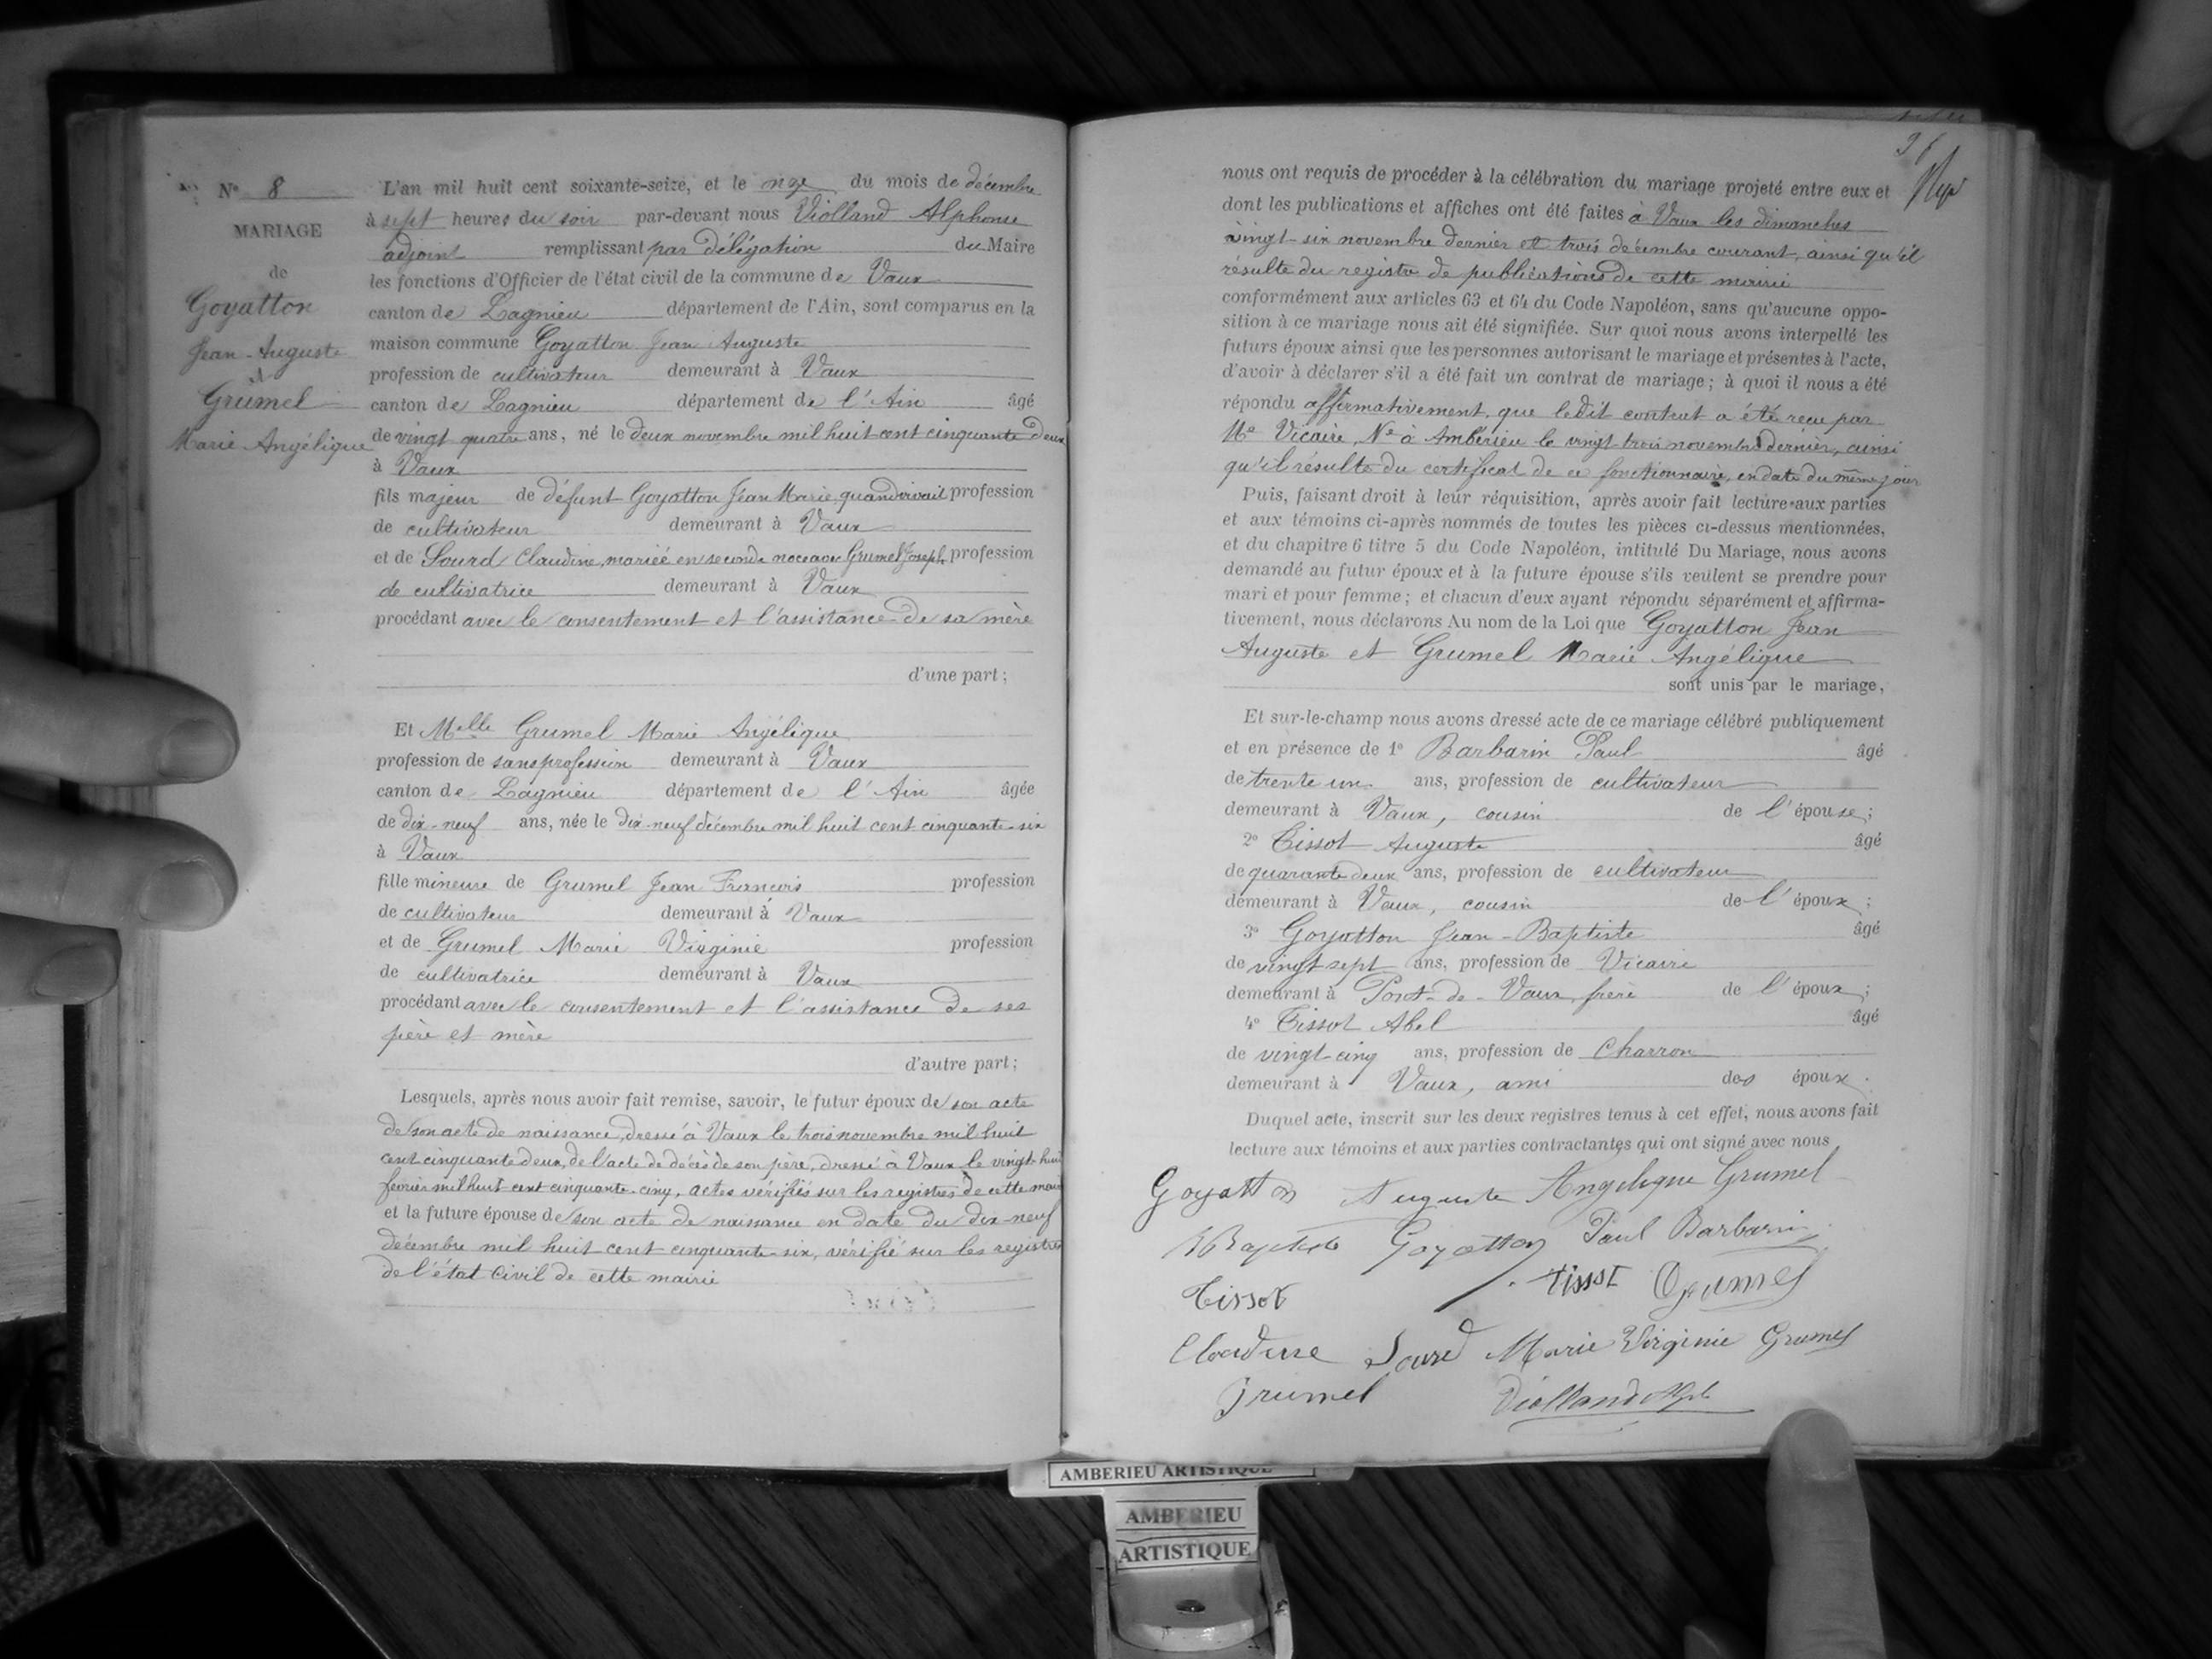 N° 8
MARIAGE
de
Goyatton
Jean-Auguste
et
Grumel
Marie Angélique
L'an mil huit cent soixante-seize, et le onze du mois de décembre
à sept heures du soir par-devant nous Violland Alphonse
adjoint remplissant par délégation du Maire
les fonctions d'Officier de l'état civil de la commune de Vaux
canton de Lagnieu département de l'Ain, sont comparus en la
maison commune Goyatton Jean Auguste
profession de cultivateur demeurant à Vaux
canton de Lagnieu département de l'Ain âgé
de vingt quatre ans, né le deux novembre mil huit cent cinquante deux
à Vaux
fils majeur de défunt Goyatton Jean Marie, quand vivait profession
de cultivateur demeurant à Vaux
et de Sourd Claudine, mariée en seconde noce avec Grumel Joseph profession
de cultivatrice demeurant à Vaux
procédant avec le consentement et l'assistance de sa mère
d'une part;
Et Melle Grumel Marie Angélique
profession de sans profession demeurant à Vaux
canton de Lagnieu département de l'Ain âgée
de dix-neuf ans, née le dix-neuf décembre mil huit cent cinquante-six
à Vaux
fille mineure de Grumel Jean François profession
de cultivateur demeurant à Vaux
et de Grumel Marie Virginie profession
de cultivatrice demeurant à Vaux
procédant avec le consentement et l'assistance de ses
père et mère
d'autre part;
Lesquels, après nous avoir fait remise, savoir, le futur époux de son acte
de son acte de naissance, dressé à Vaux le trois novembre mil huit
cent cinquante deux, de l'acte de décès de son père, dressé à Vaux le vingt-huit
février mil huit cent cinquante-cinq, actes vérifiés sur les registres de cette mairie
et la future épouse de son acte de naissance en date du dix-neuf
décembre mil huit cent cinquante-six, vérifié sur les registres
de l'état civil de cette mairie
nous ont requis de procéder à la célébration du mariage projeté entre eux et
dont les publications et affiches ont été faites à Vaux les dimanches
vingt-six novembre dernier et trois décembre courant, ainsi qu'il
résulte du registre de publications de cette mairie
conformément aux articles 63 et 64 du Code Napoléon, sans qu'aucune oppo-
sition à ce mariage nous ait été signifiée. Sur quoi nous avons interpellé les
futurs époux ainsi que les personnes autorisant le mariage et présentes à l'acte,
d'avoir à déclarer s'il a été fait un contrat de mariage; à quoi il nous a été
répondu affirmativement, que ledit contrat a été reçu par
Me Vicaire, Ne à Ambérieu le vingt trois novembre dernier, ainsi
qu'il résulte du certificat de ce fonctionnaire, en date du même jour
Puis, faisant droit à leur réquisition, après avoir fait lecture aux parties
et aux témoins ci-après nommés de toutes les pièces ci-dessus mentionnées,
et du chapitre 6 titre 5 du Code Napoléon, intitulé Du Mariage, nous avons
demandé au futur époux et à la future épouse s'ils veulent se prendre pour
mari et pour femme; et chacun d'eux ayant répondu séparément et affirma-
tivement, nous déclarons Au nom de la Loi que Goyatton Jean
Auguste et Grumel Marie Angélique
sont unis par le mariage,
Et sur-le-champ nous avons dressé acte de ce mariage célébré publiquement
et en présence de 1° Barbarin Paul âgé
de trente un ans, profession de cultivateur
demeurant à Vaux, cousin de l'épouse;
2° Tissot Auguste âgé
de quarante deux ans, profession de cultivateur
demeurant à Vaux, cousin de l'époux;
3° Goyatton Jean-Baptiste âgé
de vingt sept ans, profession de Vicaire
demeurant à Pont-de-Vaux, frère de l'époux;
4° Tissot Abel âgé
de vingt-cinq ans, profession de Charron
demeurant à Vaux, ami des époux.
Duquel acte, inscrit sur les deux registres tenus à cet effet, nous avons fait
lecture aux témoins et aux parties contractantes qui ont signé avec nous
Goyatton Auguste Angelique Grumel
Baptiste Goyatton Paul Barbarin
Tissot Tissot Grumel
Claudine Sourd Marie Virginie Grumel
Grumel Violland Alph
AMBERIEU ARTISTIQUE
AMBERIEU
ARTISTIQUE